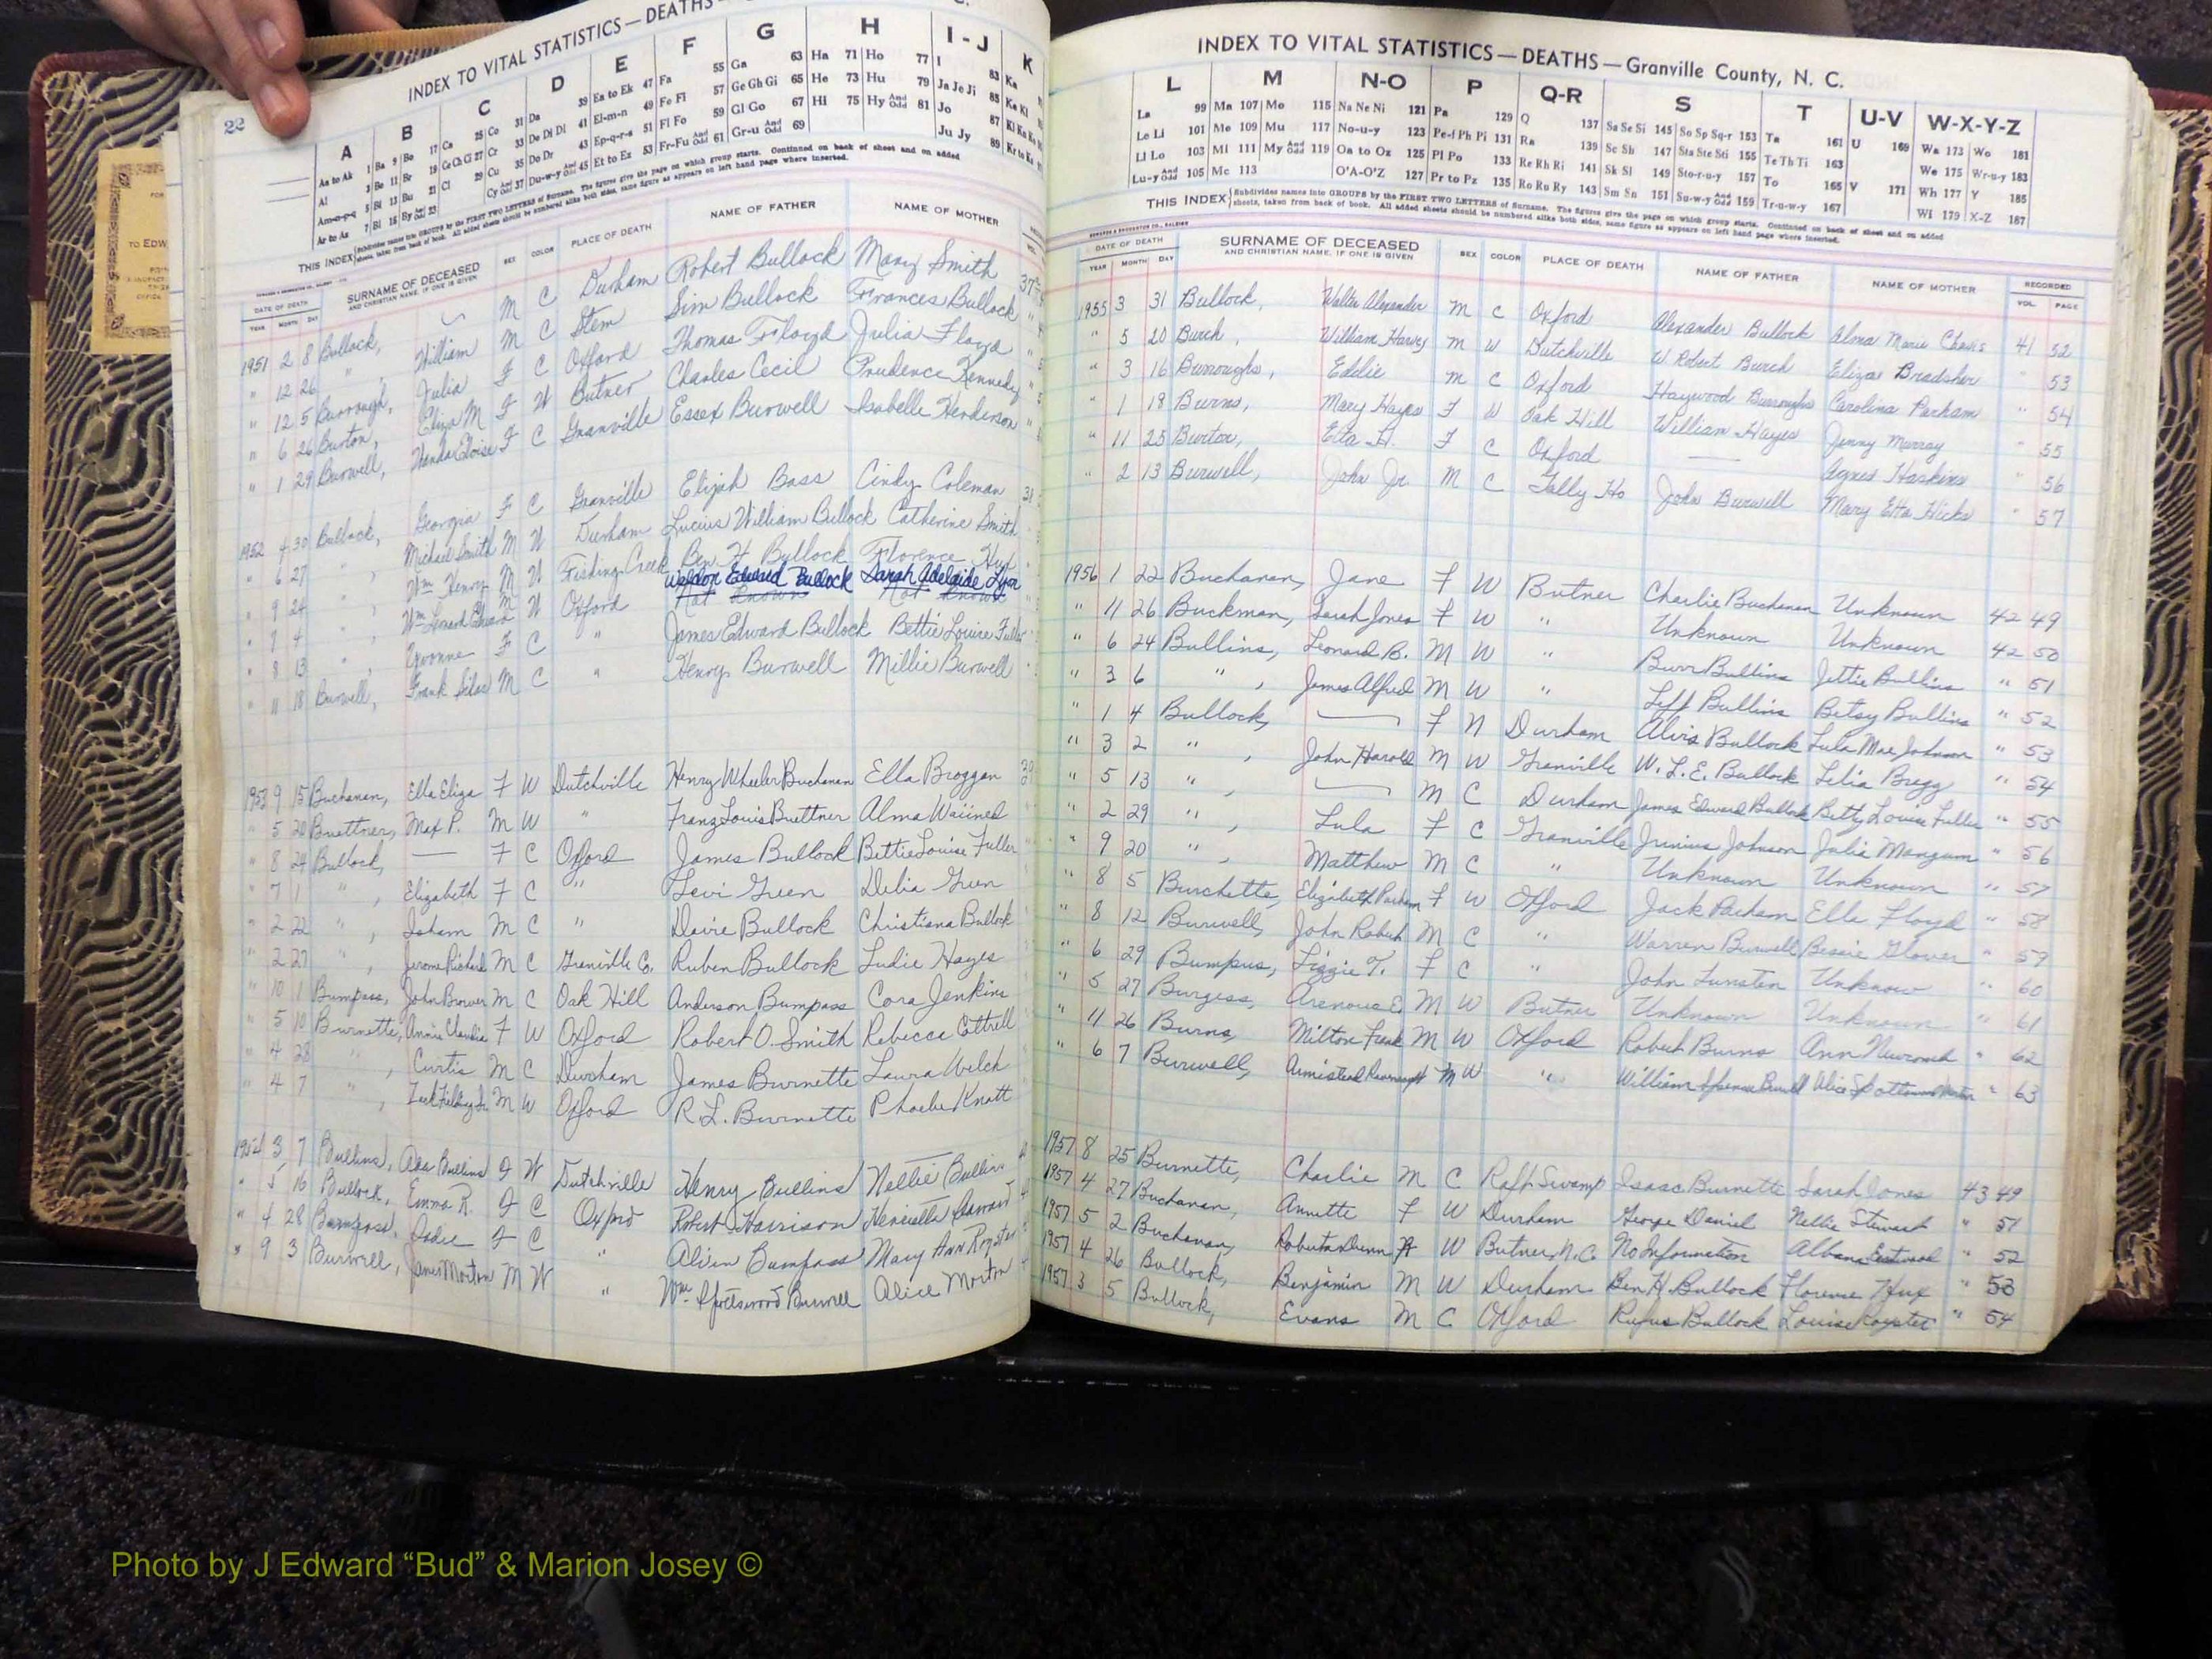 22
INDEX TO VITAL STATISTICS — DEATHS
A B C D E F G H I - J K
Aa to Ak 1 Ba 9 Bo 17 Ca 25 Co 31 Da 39 Ea to Ek 47 Fa 55 Ga 63 Ha 71 Ho 77 I 83 Ka
Al 3 Be 11 Br 19 Ce Ch Ci 27 Cr 33 De Di Dl 41 El-m-n 49 Fe Fi 57 Ge Gh Gi 65 He 73 Hu 79 Ja Je Ji 85 Ke Ki
Am-n-p-q 5 Bi 13 Bu 21 Cl 29 Cu 35 Do Dr 43 Ep-q-r-s 51 Fl Fo 59 Gl Go 67 Hi 75 Hy And Odd 81 Jo 87
Ar to Az 7 Bl 15 By And Odd 23 Cy And Odd 37 Du-w-y And Odd 45 Et to Ez 53 Fr-Fu And Odd 61 Gr-u And Odd 69 Ju Jy 89 Kr to Kz
THIS INDEX Subdivides names into GROUPS by the FIRST TWO LETTERS of Surname. The figures give the page on which group starts. Continued on back of sheet and on added
sheets, taken from back of book. All added sheets should be numbered alike both sides, same figure as appears on left hand page where inserted.
DATE OF DEATH SURNAME OF DECEASED SEX COLOR PLACE OF DEATH NAME OF FATHER NAME OF MOTHER
YEAR MONTH DAY AND CHRISTIAN NAME, IF ONE IS GIVEN
1951 2 8 Bullock, — M C Durham Robert Bullock Mary Smith 37
" 12 26 " , William M C Stem Sim Bullock Frances Bullock "
" 12 5 Burrough, Julia F C Oxford Thomas Floyd Julia Floyd "
" 6 26 Burton, Eliza M F W Butner Charles Cecil Prudence Kennedy "
" 1 29 Burwell, Wanda Eloise F C Granville Essex Burwell Isabelle Henderson "
1952 4 30 Bullock, Georgia F C Granville Elijah Bass Cindy Coleman 38
" 6 27 " , Michael Smith M W Durham Lucius William Bullock Catherine Smith
" 9 24 " , Wm Henry M W Fishing Creek Ben H Bullock Florence Hux
Weldon Edward Bullock Sarah Adelaide Lyon
" 7 4 " , Wm M W Oxford Not Known Not Known
" 8 13 " , Yvonne F C " James Edward Bullock Bettie Louise Fuller
" 11 18 Burwell, Frank Silas M C " Henry Burwell Millie Burwell
1953 9 15 Buchanan, Ella Eliza F W Dutchville Henry Wheeler Buchanan Ella Broggan 39
" 5 20 Buettner, Max P. M W " Franz Louis Buettner Alma
" 8 24 Bullock, — F C Oxford James Bullock Bettie Louise Fuller
" 7 1 " , Elizabeth F C " Levi Green Delia Green
" 2 22 " , Isham M C " Davie Bullock Christiana Bullock
" 2 27 " , Jerome Richard M C Granville Co. Ruben Bullock Ludie Hayes
" 10 1 Bumpass, John Brower M C Oak Hill Anderson Bumpass Cora Jenkins
" 5 10 Burnette, Annie Claudia F W Oxford Robert O. Smith Rebecca Cottrell
" 4 28 " , Curtis M C Durham James Burnette Laura Welch
" 4 7 " , M W Oxford R. L. Burnette Phoebe Knott
1954 3 7 Bullins, Ada Bullins F W Dutchville Henry Bullins Nellie Bullins
" 5 16 Bullock, Emma R. F C Oxford Robert Harrison Henrietta
" 4 28 Bumpass, Sadie F C " Alvin Bumpass Mary Ann Royster
" 9 3 Burwell, James Morton M W " Wm. Spotswood Burwell Alice Morton
INDEX TO VITAL STATISTICS — DEATHS — Granville County, N. C.
L M N-O P Q-R S T U-V W-X-Y-Z
La 99 Ma 107 Mo 115 Na Ne Ni 121 Pa 129 Q 137 Sa Se Si 145 So Sp Sq-r 153 Ta 161 U 169 Wa 173 Wo 181
Le Li 101 Me 109 Mu 117 No-u-y 123 Pe-f Ph Pi 131 Ra 139 Sc Sh 147 Sta Ste Sti 155 Te Th Ti 163 We 175 Wr-u-y 183
Ll Lo 103 Mi 111 My And Odd 119 Oa to Oz 125 Pl Po 133 Re Rh Ri 141 Sk Sl 149 Sto-r-u-y 157 To 165 V 171 Wh 177 Y 185
Lu-y And Odd 105 Mc 113 O'A-O'Z 127 Pr to Pz 135 Ro Ru Ry 143 Sm Sn 151 Su-w-y And Odd 159 Tr-u-w-y 167 Wi 179 X-Z 187
THIS INDEX Subdivides names into GROUPS by the FIRST TWO LETTERS of Surname. The figures give the page on which group starts. Continued on back of sheet and on added
sheets, taken from back of book. All added sheets should be numbered alike both sides, same figure as appears on left hand page where inserted.
DATE OF DEATH SURNAME OF DECEASED SEX COLOR PLACE OF DEATH NAME OF FATHER NAME OF MOTHER RECORDED
YEAR MONTH DAY AND CHRISTIAN NAME, IF ONE IS GIVEN VOL. PAGE
1955 3 31 Bullock, Walter Alexander M C Oxford Alexander Bullock Alma Marie Chavis 41 52
" 5 20 Burch, William Harvey M W Dutchville W. Robert Burch Eliza Bradsher " 53
" 3 16 Burroughs, Eddie M C Oxford Haywood Burroughs Carolina Parham " 54
" 1 18 Burns, Mary Hayes F W Oak Hill William Hayes Jenny Murray " 55
" 11 25 Burton, Etta H. F C Oxford — Agnes Haskins " 56
" 2 13 Burwell, John Jr. M C Tally Ho John Burwell Mary Etta Hicks " 57
1956 1 22 Buchanan, Jane F W Butner Charlie Buchanan Unknown 42 49
" 11 26 Buckman, Sarah Jones F W " Unknown Unknown 42 50
" 6 24 Bullins, Leonard B. M W " Burr Bullins Jettie Bullins " 51
" 3 6 " , James Alfred M W " Leff Bullins Betsy Bullins " 52
" 1 4 Bullock, — F N Durham Alvis Bullock Lula Mae Johnson " 53
" 3 2 " , John Harold M W Granville W. L. E. Bullock Lelia Bragg " 54
" 5 13 " , — M C Durham James Edward Bullock Betty Louise Fuller " 55
" 2 29 " , Lula F C Granville Junius Johnson Julia Mangum " 56
" 9 20 " , Matthew M C " Unknown Unknown " 57
" 8 5 Burchette, Elizabeth Parham F W Oxford Jack Parham Ella Floyd " 58
" 8 12 Burwell, John Robert M C " Warren Burwell Bessie Glover " 59
" 6 29 Bumpus, Lizzie T. F C " John Tunsten Unknown " 60
" 5 27 Burgess, E. M W Butner Unknown Unknown " 61
" 11 26 Burns, Milton Frank M W Oxford Robert Burns Ann Newcomb " 62
" 6 7 Burwell, Armistead M W " William Spencer Burwell Alice " 63
1957 8 25 Burnette, Charlie M C Ralf Swamp Isaac Burnette Sarah Jones 43 49
1957 4 27 Buchanan, Annette F W Durham George Daniel Nellie Stewart " 51
1957 5 2 Buchanan, Roberta Dunn W Butner, N.C. No Information Albana Eastwood " 52
1957 4 26 Bullock, Benjamin M W Durham Ben H. Bullock Florence Hux " 53
1957 3 5 Bullock, Evans M C Oxford Rufus Bullock Louise Royster " 54
Photo by J Edward “Bud” & Marion Josey ©